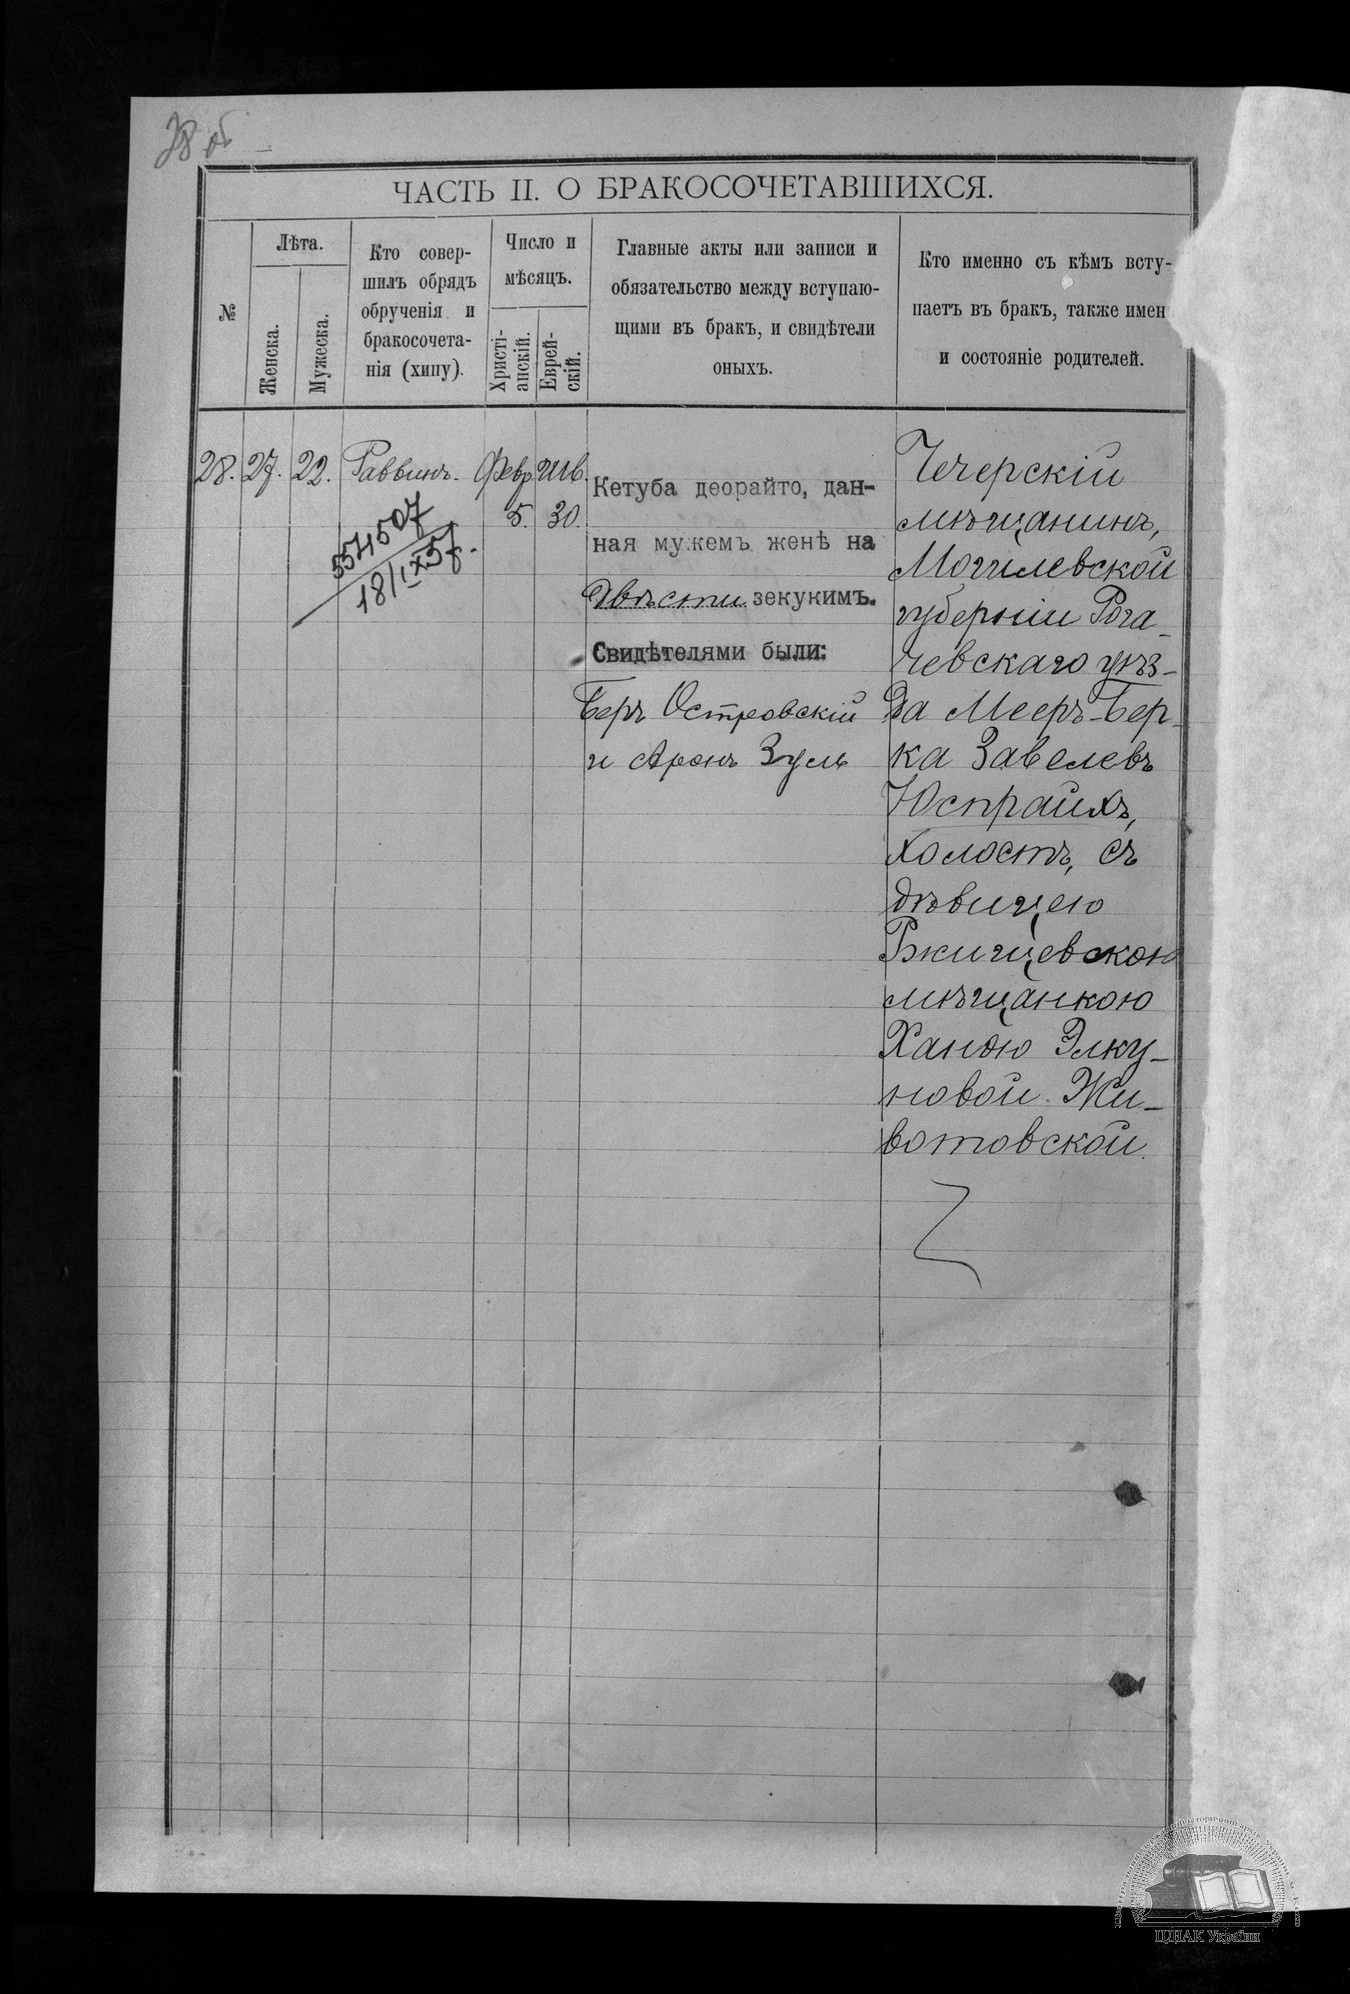 28 об
ЧАСТЬ II. О БРАКОСОЧЕТАВШИХСЯ.
№
Лѣта.
Женска.
Мужеска.
Кто совер-
шилъ обрядъ
обрученія и
бракосочета-
нія (хипу).
Число и
мѣсяцъ.
Христі-
анскій.
Еврей-
скій.
Главные акты или записи и
обязательство между вступаю-
щими въ бракъ, и свидѣтели
оныхъ.
Кто именно съ кѣмъ всту-
паетъ въ бракъ, также имен
и состояніе родителей.
28. 27. 22. Раввинъ. Февр. Шв.
5. 30.
554507
18/IX57.
Кетуба деорайто, дан-
ная мужемъ женѣ на
двѣсти зекукимъ.
Свидѣтелями были:
Беръ Островскій
и Аронъ Зуль
Чечерскій
мѣщанинъ,
Могилевской
губерніи Рога-
чевскаго уѣз-
да Мееръ-Бер-
ка Завелевъ
Юспрайхъ,
холостъ, съ
дѣвицею
Ржищевскою
мѣщанкою
Ханою Элку-
новой Жи-
вотовской.
ЦДІАК України